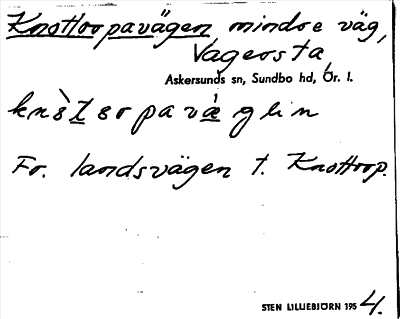 Knottorpavägen mindre väg,
Vagersta,
Askersunds sn, Sundbo hd, Ör. l.
Fr. landsvägen t. Knottorp.
STEN LILLIEBJÖRN 1954.